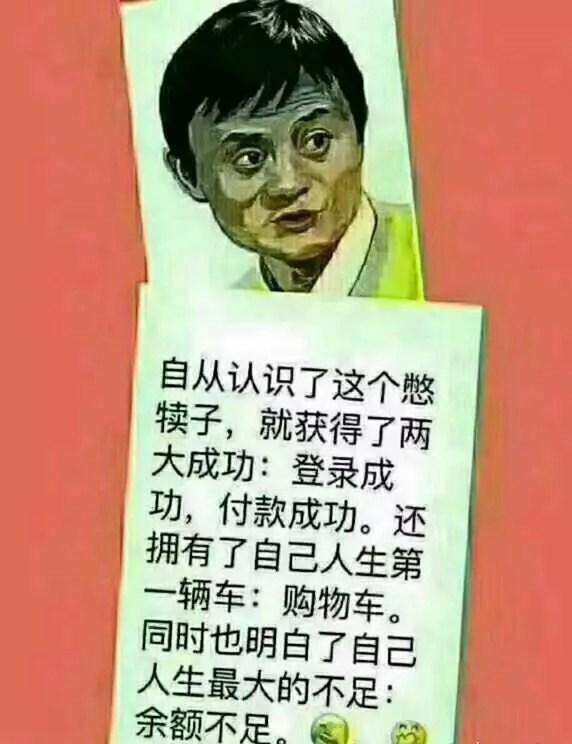 自从认识了这个憋
犊子，就获得了两
大成功：登录成
功，付款成功。还
拥有了自己人生第
一辆车：购物车。
同时也明白了自己
人生最大的不足：
余额不足。